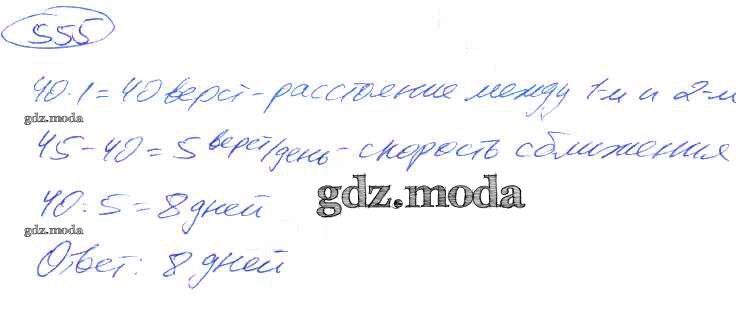 555
40·1=40 верст - расстояние между 1-м и 2-м
gdz.moda
45-40=5 верст/день - скорость сближения
40:5=8 дней
gdz.moda
gdz.moda
Ответ: 8 дней